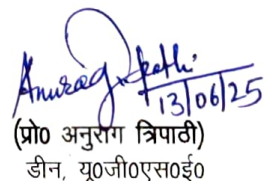 Anurag Tripathi
13/06/25
(प्रो० अनुराग त्रिपाठी)
डीन, यू०जी०एस०ई०